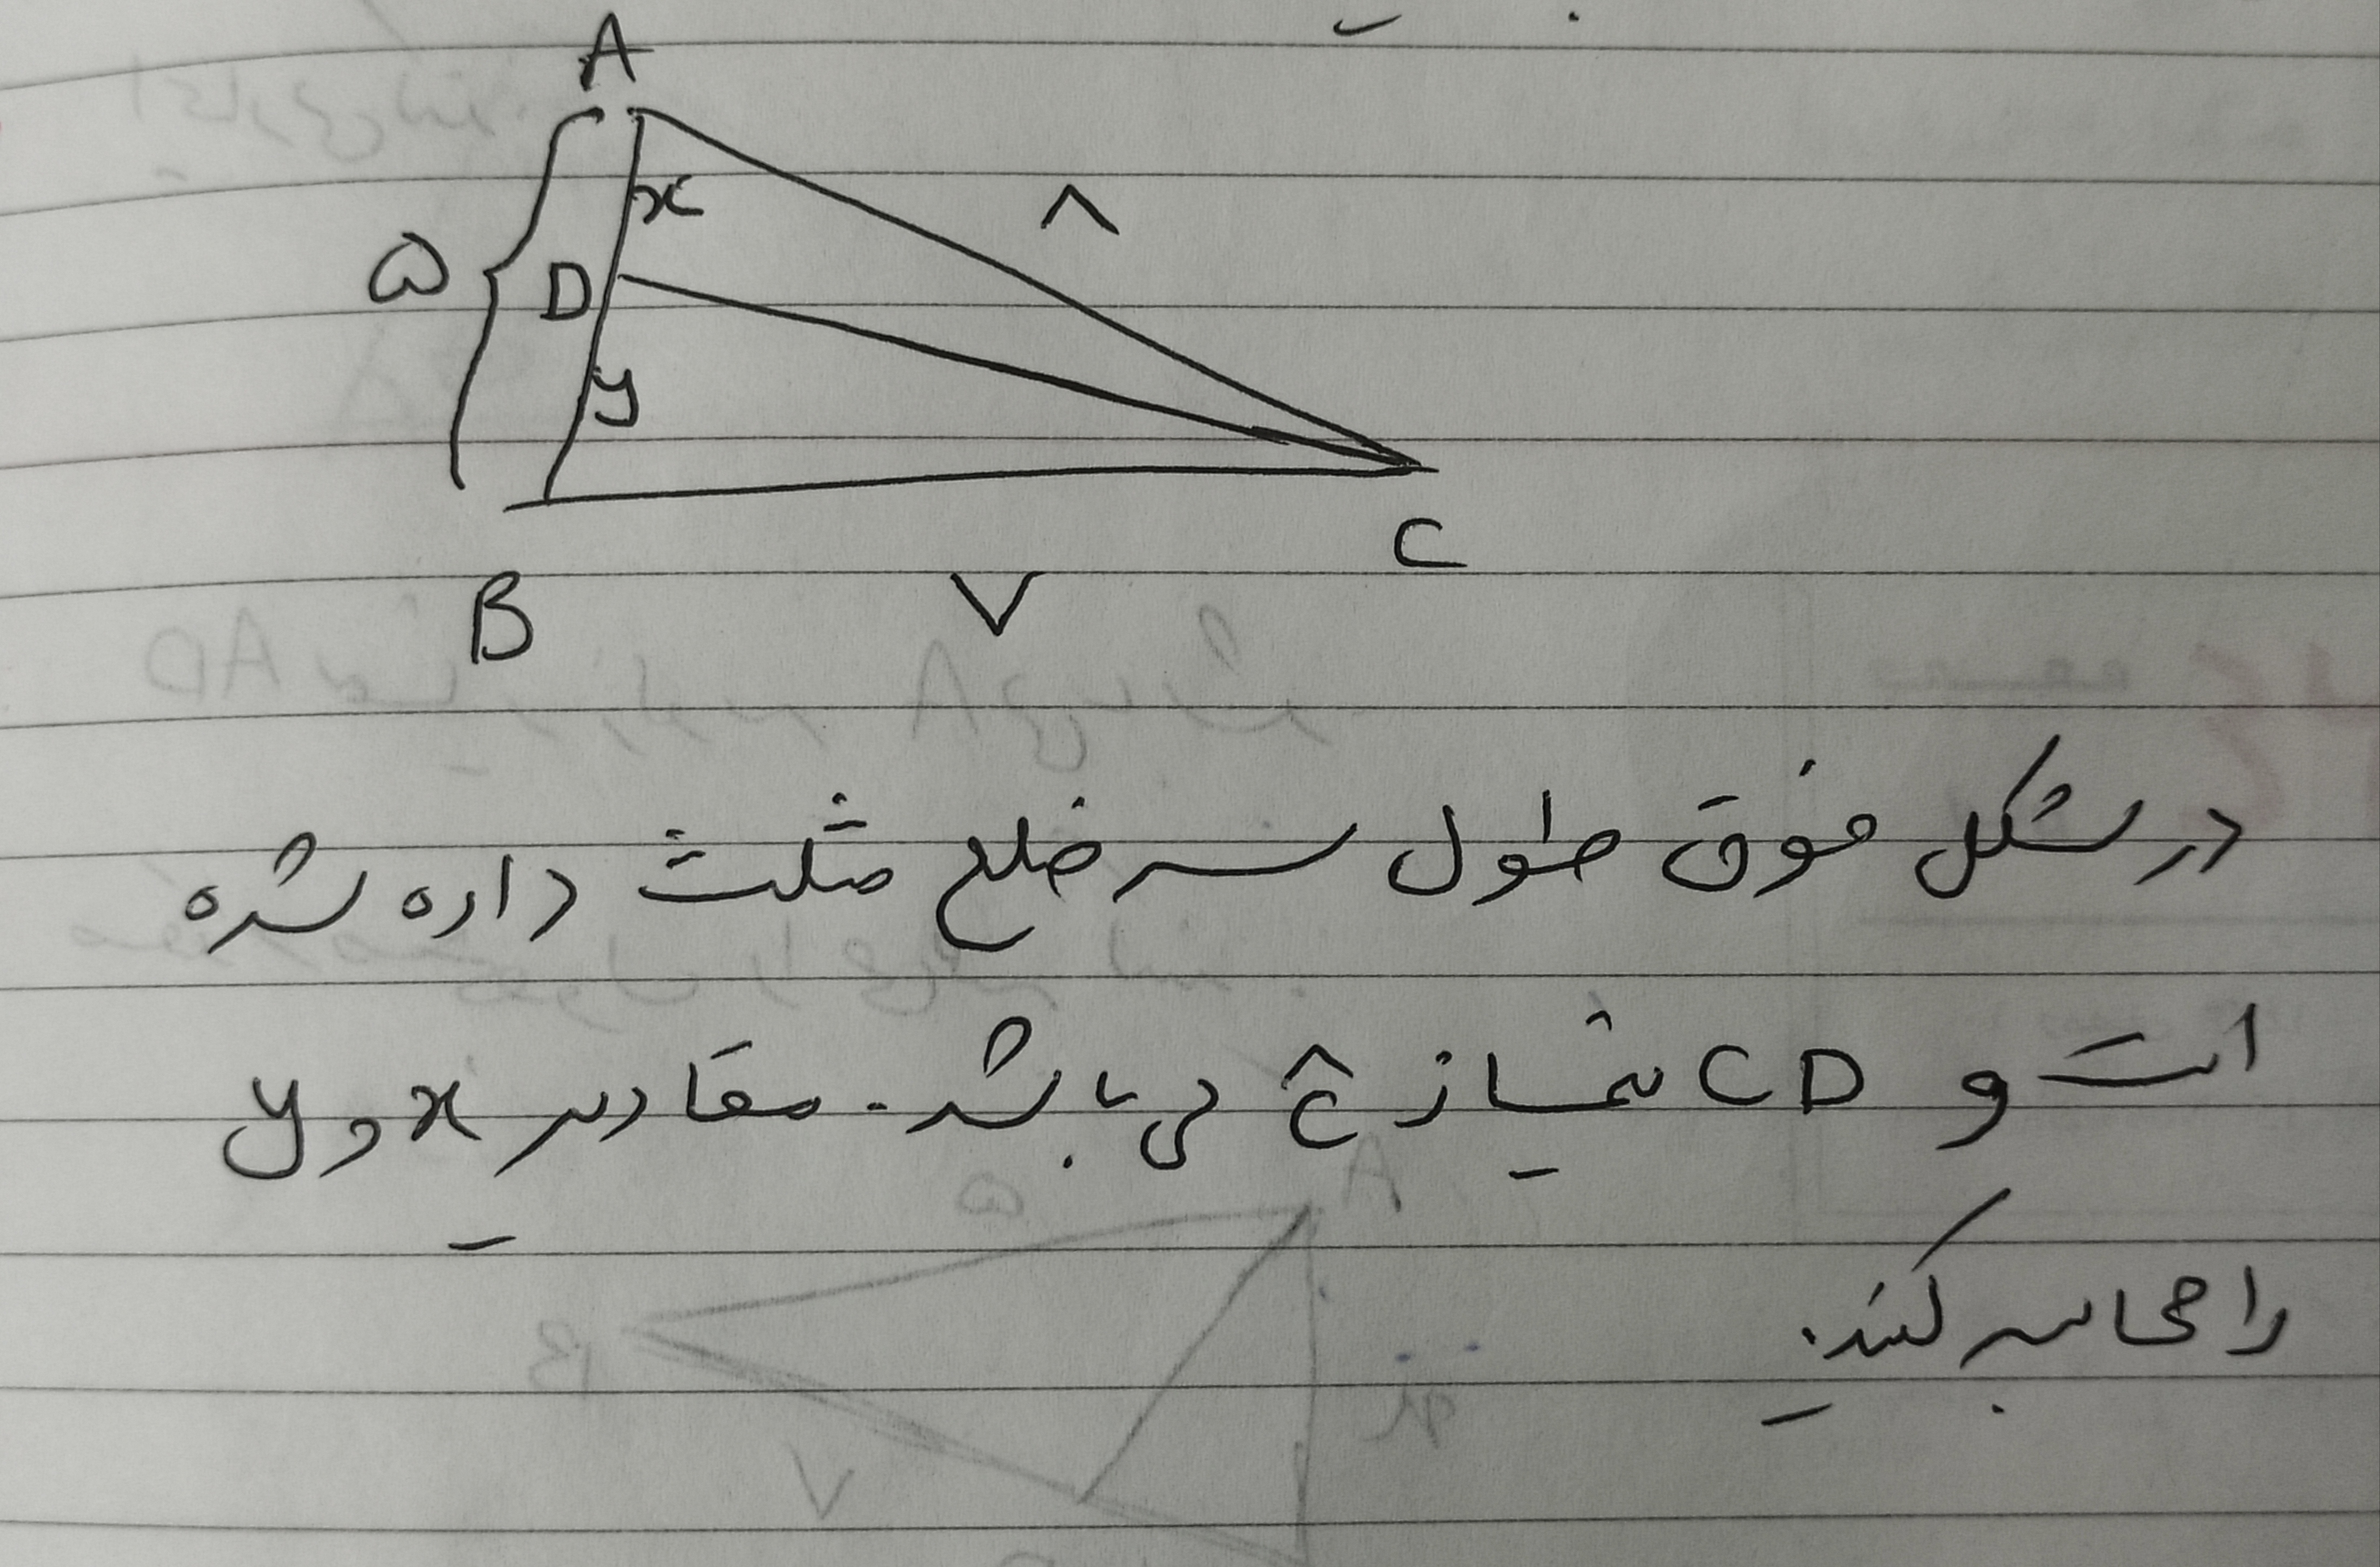 A
x
۸
۵
D
y
C
B
۷
در شکل فوق طول سه ضلع مثلث داده شده
است و CD نیمساز Ĉ می باشد. مقادیر x و y
را محاسبه کنید.